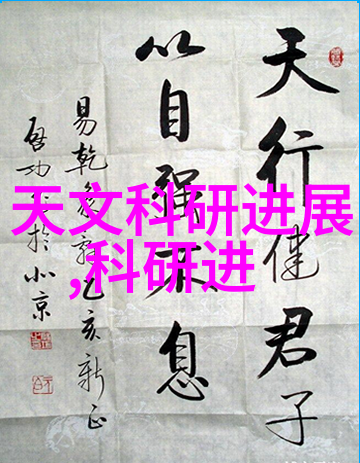 天行健君子
以自强不息
易乾象辞乙亥新正
启功书於北京
天文科研进展
,科研进